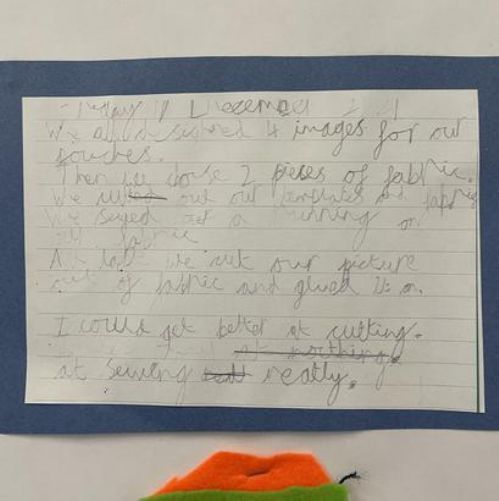 We all designed 4 images for our
pouches.
Then we chose 2 pieses of fabric.
We out our templates and fabric
We seyed a running on
our fabric
At last we cut our picture
out of fabric and glued it on.
I could get better at cutting.
at northing.
at sewing neatly.